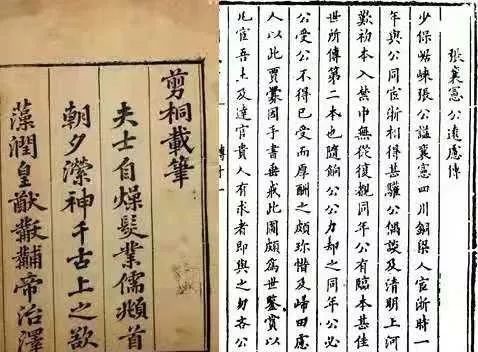 張襄憲公遠慮傳
少保岷崍張公謚襄憲四川銅梁人宦浙時一
年與公同宦浙相得甚驩公偶談及清明上河
歎初本入禁中無從復覩同年公有臨本甚佳
世所傳第二本也隨餉公公力却之同年公必
公受公不得已受而厚酬之頗珎惜及歸田慮
人以此賈釁因手書垂戒此圖頗為世鑒賞以
凡宦吾土及達官貴人有求者即與之勿吝公
剪桐載筆
夫士自燥髮業儒頫首
朝夕潆神千古上之欲
藻潤皇猷黻黼帝治澤